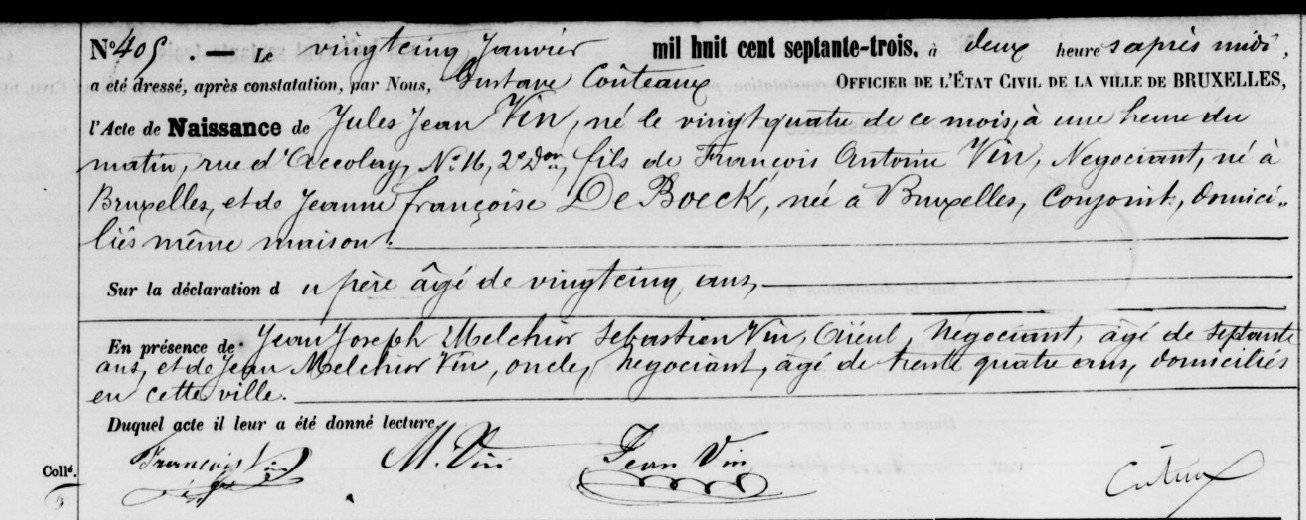 N° 405. — Le vingtcinq Janvier mil huit cent septante-trois, à deux heures après midi,
a été dressé, après constatation, par Nous, Gustave Couteaux OFFICIER DE L'ÉTAT CIVIL DE LA VILLE DE BRUXELLES,
l'Acte de Naissance de Jules Jean Vin, né le vingtquatre de ce mois, à une heure du
matin, rue d'Accolay, N° 16, 2e Don, fils de François Antoine Vin, Negociant, né à
Bruxelles, et de Jeanne françoise De Boeck, née à Bruxelles, Conjoints, domici-
liés même maison.
Sur la déclaration du père âgé de vingtcinq ans,
En présence de Jean Joseph Melchior Sebastien Vin, Aïeul, Négociant, âgé de septante
ans, et de Jean Melchior Vin, oncle, négociant, âgé de trente quatre ans, domiciliés
en cette ville.
Duquel acte il leur a été donné lecture.
Collé.
François Vin M. Vin Jean Vin